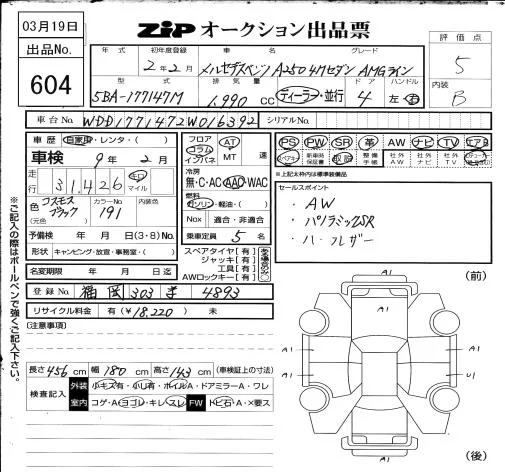 03月19日
ZiP オークション出品票
出品No. 604
年式 初年度登録 車名 グレード
2年2月 メルセデスベンツ A250 4Mセダン AMGライン
型式 排気量 ドア ハンドル
5BA-177147M 1,990 CC ディーラー・並行 4 左・右
評価点 5
内装 B
車台No. WDD1771472W016392 シリアルNo.
車歴 自家用・レンタ・( )
車検 9年2月
走行 31,426 キロ マイル
色(元色) コスモスブラック カラーNo. 191 内装色
予備検 年 月 日(3・8)No.
形状 キャンピング・放宣・事務室・( )
名変期限 年 月 日迄
フロア コラム インパネ AT MT 速
冷房 無・C・AC・AAC・WAC
燃料 ガソリン・軽油・( )
Nox 適合・非適合
乗車定員 5 名
スペアタイヤ[有]
ジャッキ[有]
工具[有]
AWロックキー[有]
PS PW SR 革 AW ナビ TV エアB
スペアキー 新車時保証書 取説 整備手帳 社外AW 社外ナビ 社外TV
※上記太枠内は標準装備品
セールスポイント
・AW
・パノラミックSR
・ハーフレザー
登録No. 福岡 303 ま 4893
リサイクル料金 有(¥18,220) 未
[注意事項]
長さ456cm 幅180cm 高さ143cm (車検証上の寸法)
検査記入 外装 小キズ有・小凹有・ホイルA・ドアミラーA・ワレ
室内 コゲ・A・ヨゴレ・キレ・スレ FW トビ石・A・×要ス
※ご記入の際はボールペンで強くご記入下さい。
(前)
A1
A1
A1 A1
A1 U1
A1
(後)